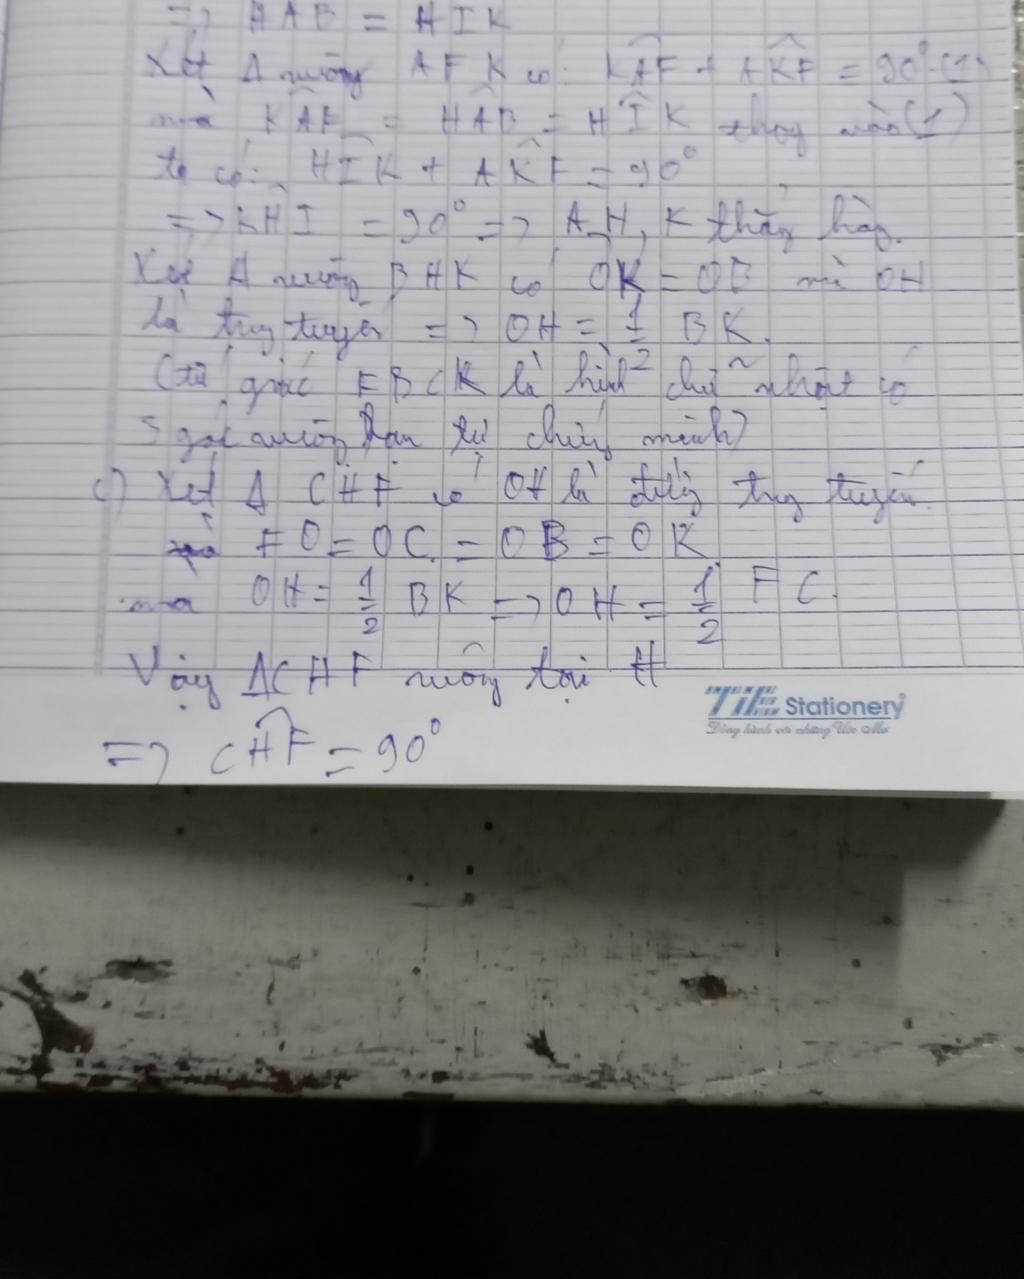 => HAB = HIK
Xét Δ vuông AFK có: KAF + AKF = 90° (1)
mà KAF = HAB = HIK thay vào (1)
ta có: HIK + AKF = 90°
=> KHI = 90° => A, H, K thẳng hàng.
Xét Δ vuông BHK có OK = OB mà OH
là trung tuyến => OH = 1/2 BK.
(tứ giác FBCK là hình chữ nhật có
3 góc vuông bạn tự chứng minh)
c) Xét Δ CHF có OH là đường trung tuyến.
FO = OC = OB = OK
mà OH = 1/2 BK => OH = 1/2 FC.
Vậy ΔCHF vuông tại H
=> CHF = 90°
TiE Stationery
Đồng hành với những Ước Mơ